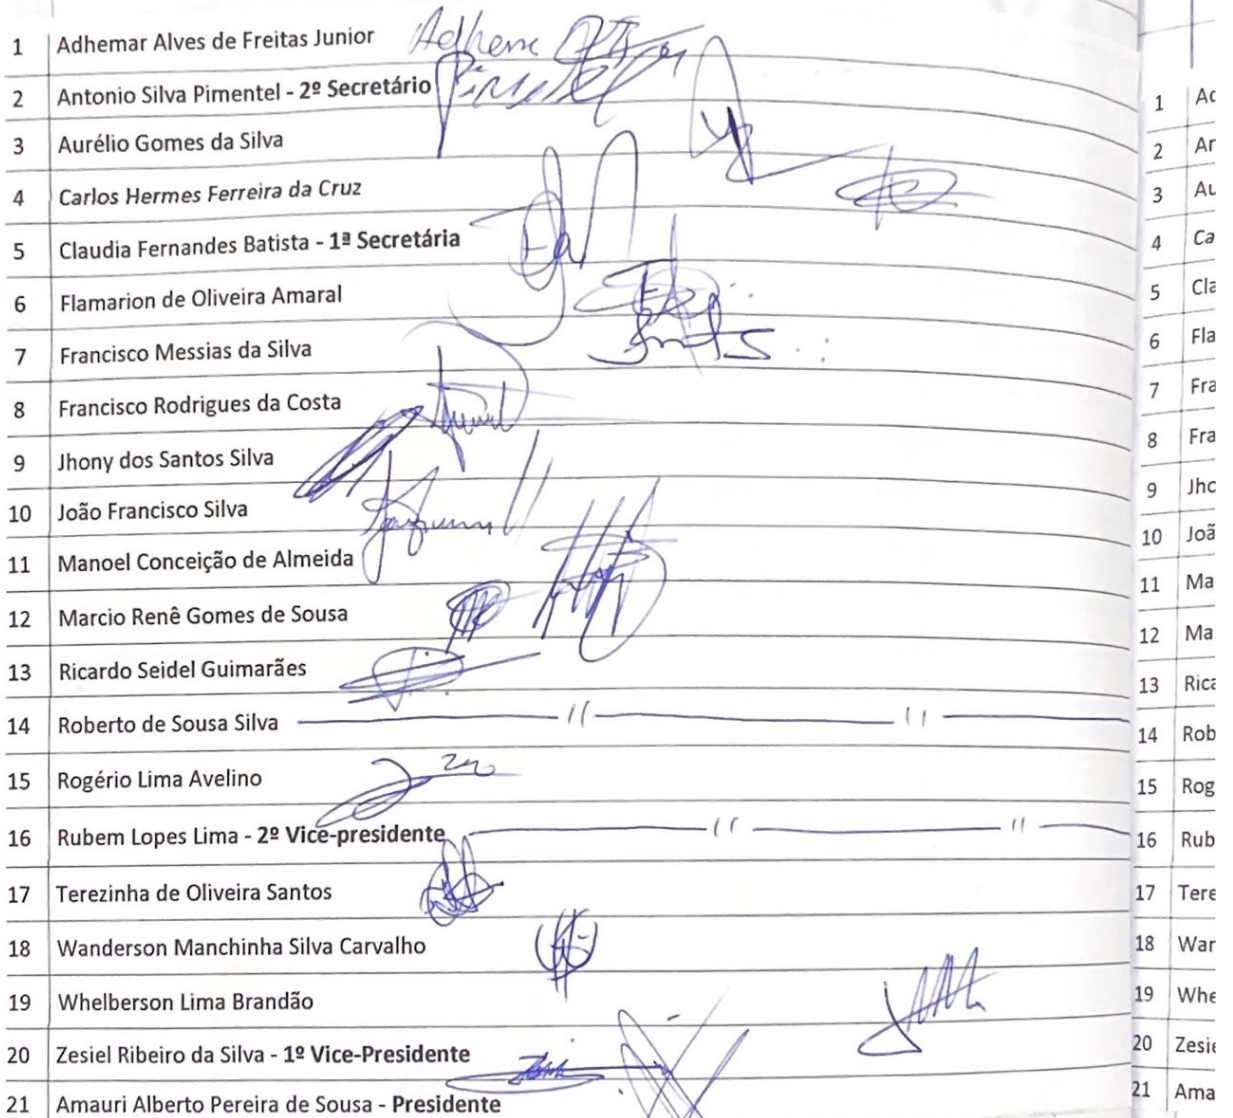 1 Adhemar Alves de Freitas Junior Adheme
2 Antonio Silva Pimentel - 2º Secretário Pimentel
3 Aurélio Gomes da Silva
4 Carlos Hermes Ferreira da Cruz
5 Claudia Fernandes Batista - 1ª Secretária
6 Flamarion de Oliveira Amaral
7 Francisco Messias da Silva
8 Francisco Rodrigues da Costa
9 Jhony dos Santos Silva
10 João Francisco Silva
11 Manoel Conceição de Almeida
12 Marcio Renê Gomes de Sousa
13 Ricardo Seidel Guimarães
14 Roberto de Sousa Silva
15 Rogério Lima Avelino
16 Rubem Lopes Lima - 2º Vice-presidente
17 Terezinha de Oliveira Santos
18 Wanderson Manchinha Silva Carvalho
19 Whelberson Lima Brandão
20 Zesiel Ribeiro da Silva - 1º Vice-Presidente
21 Amauri Alberto Pereira de Sousa - Presidente
1 Ad
2 An
3 Au
4 Ca
5 Cla
6 Fla
7 Fra
8 Fra
9 Jho
10 Joã
11 Ma
12 Ma
13 Rica
14 Rob
15 Rog
16 Rub
17 Tere
18 Wan
19 Whe
20 Zesie
21 Ama